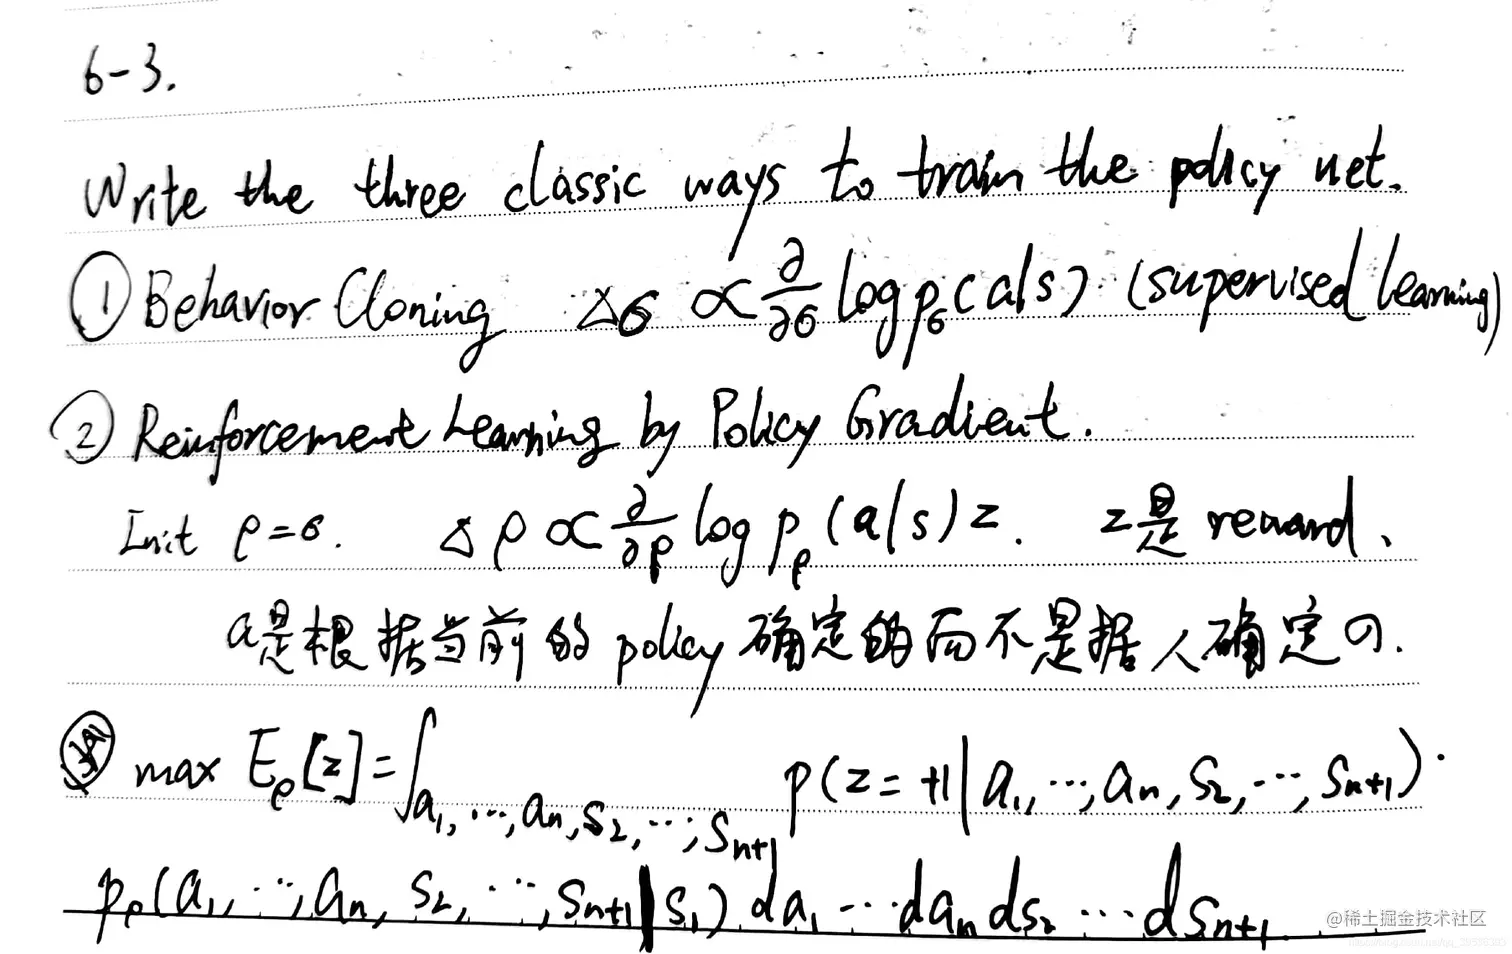 6-3.
Write the three classic ways to train the policy net.
① Behavior Cloning Δσ ∝ ∂/∂σ log p_σ(a|s) (supervised learning)
② Reinforcement Learning by Policy Gradient.
Init ρ=σ. Δρ ∝ ∂/∂ρ log p_ρ(a|s)z. z是reward、
a是根据当前的policy确定的而不是据人确定の.
max E_ρ[z]=∫_{a₁,…,aₙ,s₂,…,sₙ₊₁} p(z=+1|a₁,…,aₙ,s₂,…,sₙ₊₁)·
p_ρ(a₁,…,aₙ,s₂,…,sₙ₊₁|s₁)da₁…daₙds₂…dsₙ₊₁
@稀土掘金技术社区